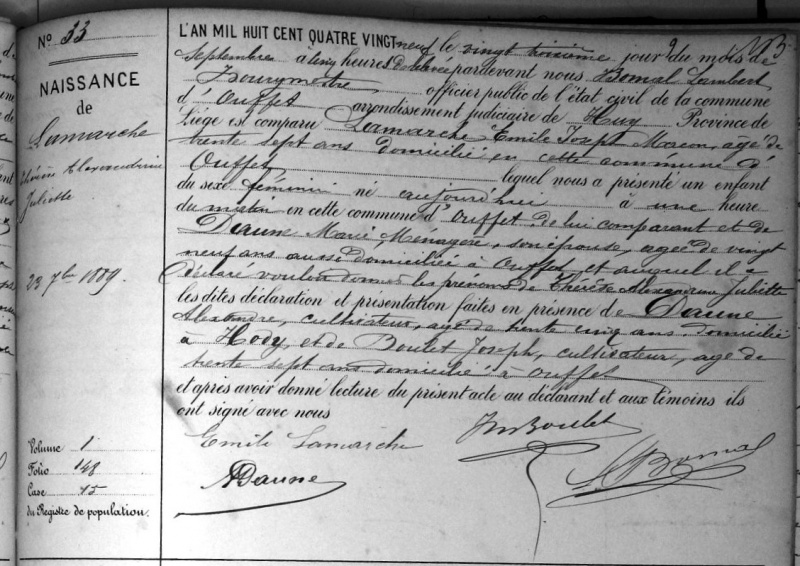 No 33
NAISSANCE
de
Lamarche
Alexandrine
Juliette
23 7bre 1889.
Volume 1
Folio 148
Case 45
du Registre de population.
L'AN MIL HUIT CENT QUATRE VINGT neuf le vingt troisième jour du mois de
Septembre à cinq heures de pardevant nous Bomal Lambert
Bourgmestre officier public de l'état civil de la commune
d'Ouffet arrondissement judiciaire de Huy Province de
Liége est comparu Lamarche Emile Joseph agé de
trente sept ans domicilié en cette commune d'
Ouffet lequel nous a présenté un enfant
du sexe féminin né aujourd'hui à une heure
du matin en cette commune d'Ouffet de lui comparant et de
Daune Marie, Ménagère, son épouse, agée de vingt
neuf ans aussi domiciliée à Ouffet et auquel il a
déclaré vouloir donner les prénoms de Thérèse Alexandrine Juliette
les dites déclaration et présentation faites en présence de Daune
Alexandre, cultivateur, agé de trente cinq ans domicilié
à Hody, et de Boulet Joseph, cultivateur, agé de
trente sept ans domicilié à Ouffet
et après avoir donné lecture du présent acte au déclarant et aux témoins ils
ont signé avec nous
Emile Lamarche
Boulet
ADaune
LBomal